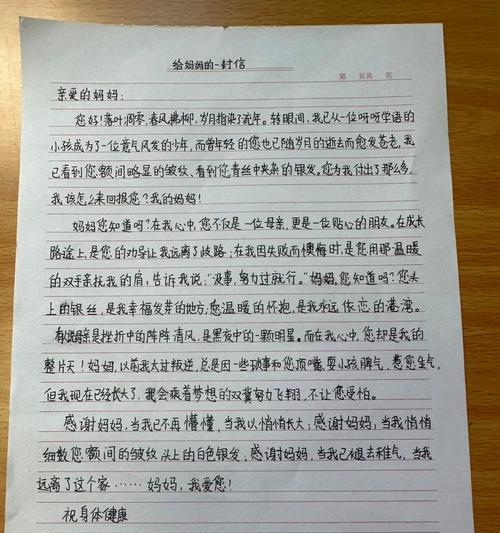 给妈妈的一封信
第 页共 页
亲爱的妈妈：
您好！落叶凋零，春风拂柳，岁月指染了流年。转眼间，我已从一位呀呀学语的
小孩成为了一位意气风发的少年，而曾年轻的您也已随岁月的逝去而愈发苍老，我
已看到您额间略显的皱纹、看到您青丝中夹杂的银发。您为我付出了那么多，
我该怎么来回报您？我的妈妈！
妈妈您知道吗？在我心中，您不仅是一位母亲，更是一位贴心的朋友。在成长
路途上，是您的劝导让我远离了歧路；在我因失败而懊悔时，是您用那温暖
的双手亲抚我的肩，告诉我说：“没事，努力过就行。”妈妈，您知道吗？您头
上的银丝，是我幸福发芽的地方；您温暖的怀抱，是我永远依恋的港湾。
有人说母亲是挫折中的阵阵清风，是黑夜中的一颗明星。而在我心中，您却是我的
整片天！妈妈，以前我太过叛逆，总是因一些琐事和您顶嘴，耍小孩脾气，惹您生气，
但我现在已经长大了，我会乘着梦想的双翼努力飞翔，不让您受怕。
感谢妈妈，当我已不再懵懂，当我以悄悄长大；感谢妈妈，当我悄悄
细数您额间的皱纹头上的白色银发；感谢妈妈，当我已褪去稚气，当我
远离了这个家……妈妈，我爱您！
祝身体健康